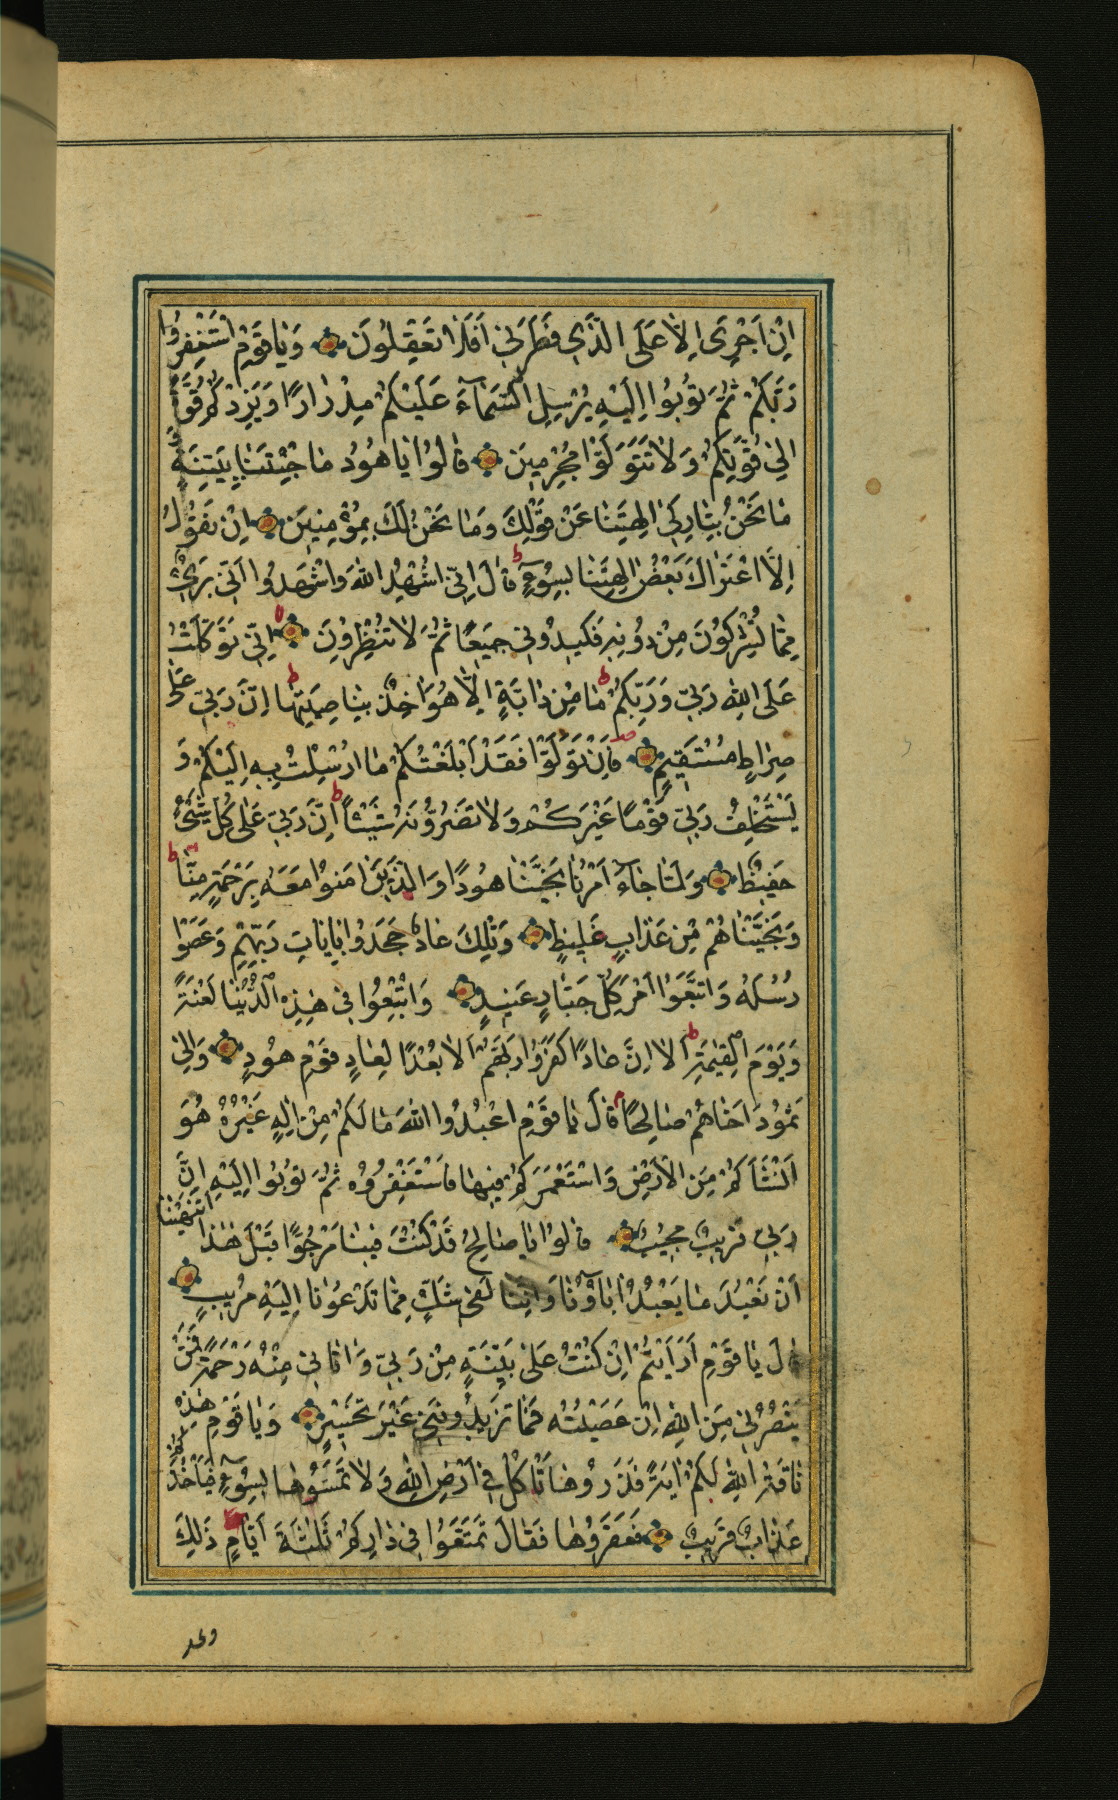 اِنْ اَجْرِىَ اِلّا عَلَى الَّذي فَطَرَني اَفَلا تَعْقِلُونَ وَيا قَوْمِ اسْتَغْفِرُوا
رَبَّكُمْ ثُمَّ تُوبُوا اِلَيْهِ يُرْسِلِ السَّمآءَ عَلَيْكُمْ مِدْرارًا وَيَزِدْكُمْ قُوَّةً
اِلى قُوَّتِكُمْ وَلا تَتَوَلَّوْا مُجْرِمينَ قالُوا يا هُودُ ما جِئْتَنا بِبَيِّنَةٍ وَ
ما نَحْنُ بِتارِكي الِهَتِنا عَنْ قَوْلِكَ وَما نَحْنُ لَكَ بِمُؤْمِنينَ اِنْ نَقُولُ
اِلَّا اعْتَراكَ بَعْضُ الِهَتِنا بِسُوءٍ ط قالَ اِنّي اُشْهِدُ اللهَ وَاشْهَدُوا اَنّي بَرىءٌ
مِمّا تُشْرِكُونَ مِنْ دُونِه فَكيدُوني جَميعًا ثُمَّ لا تُنْظِرُونِ اِنّي تَوَكَّلْتُ
عَلَى اللهِ رَبّي وَرَبِّكُمْ ط ما مِنْ دابَّةٍ اِلّا هُوَ اخِذٌ بِناصِيَتِها ط اِنَّ رَبّي عَلى
صِراطٍ مُسْتَقيمٍ فَاِنْ تَوَلَّوْا فَقَدْ اَبْلَغْتُكُمْ ما اُرْسِلْتُ بِه اِلَيْكُمْ وَ
يَسْتَخْلِفُ رَبّي قَوْمًا غَيْرَكُمْ وَلا تَضُرُّونَهُ شَيْئًا ط اِنَّ رَبّي عَلى كُلِّ شَىْءٍ
حَفيظٌ وَلَمّا جاءَ اَمْرُنا نَجَّيْنا هُودًا وَالَّذينَ امَنُوا مَعَهُ بِرَحْمَةٍ مِنّا
وَنَجَّيْناهُمْ مِنْ عَذابٍ غَليظٍ وَتِلْكَ عادٌ جَحَدُوا بِاياتِ رَبِّهِمْ وَعَصَوْا
رُسُلَهُ وَاتَّبَعُوا اَمْرَ كُلِّ جَبّارٍ عَنيدٍ وَاُتْبِعُوا في هذِهِ الدُّنْيا لَعْنَةً
وَيَوْمَ الْقِيمَةِ ط اَلا اِنَّ عادًا كَفَرُوا رَبَّهُمْ اَلا بُعْدًا لِعادٍ قَوْمِ هُودٍ وَاِلى
ثَمُودَ اَخاهُمْ صالِحًا قالَ يا قَوْمِ اعْبُدُوا اللهَ ما لَكُمْ مِنْ اِلهٍ غَيْرُهُ هُوَ
اَنْشَاَكُمْ مِنَ الْاَرْضِ وَاسْتَعْمَرَكُمْ فيها فَاسْتَغْفِرُوهُ ثُمَّ تُوبُوا اِلَيْهِ اِنَّ
رَبّي قَريبٌ مُجيبٌ قالُوا يا صالِحُ قَدْ كُنْتَ فينا مَرْجُوًّا قَبْلَ هذا اَتَنْهينا
اَنْ نَعْبُدَ ما يَعْبُدُ اباؤُنا وَاِنَّنا لَفي شَكٍّ مِمّا تَدْعُونا اِلَيْهِ مُريبٍ
قالَ يا قَوْمِ اَرَاَيْتُمْ اِنْ كُنْتُ عَلى بَيِّنَةٍ مِنْ رَبّي وَاتاني مِنْهُ رَحْمَةً فَمَنْ
يَنْصُرُني مِنَ اللهِ اِنْ عَصَيْتُهُ فَما تَزيدُونَني غَيْرَ تَخْسيرٍ وَيا قَوْمِ هذِه
ناقَةُ اللهِ لَكُمْ ايَةً فَذَرُوها تَاْكُلْ في اَرْضِ اللهِ وَلا تَمَسُّوها بِسُوءٍ فَيَاْخُذَكُمْ
عَذابٌ قَريبٌ فَعَقَرُوها فَقالَ تَمَتَّعُوا في دارِكُمْ ثَلثَةَ اَيّامٍ ذلِكَ
وعد